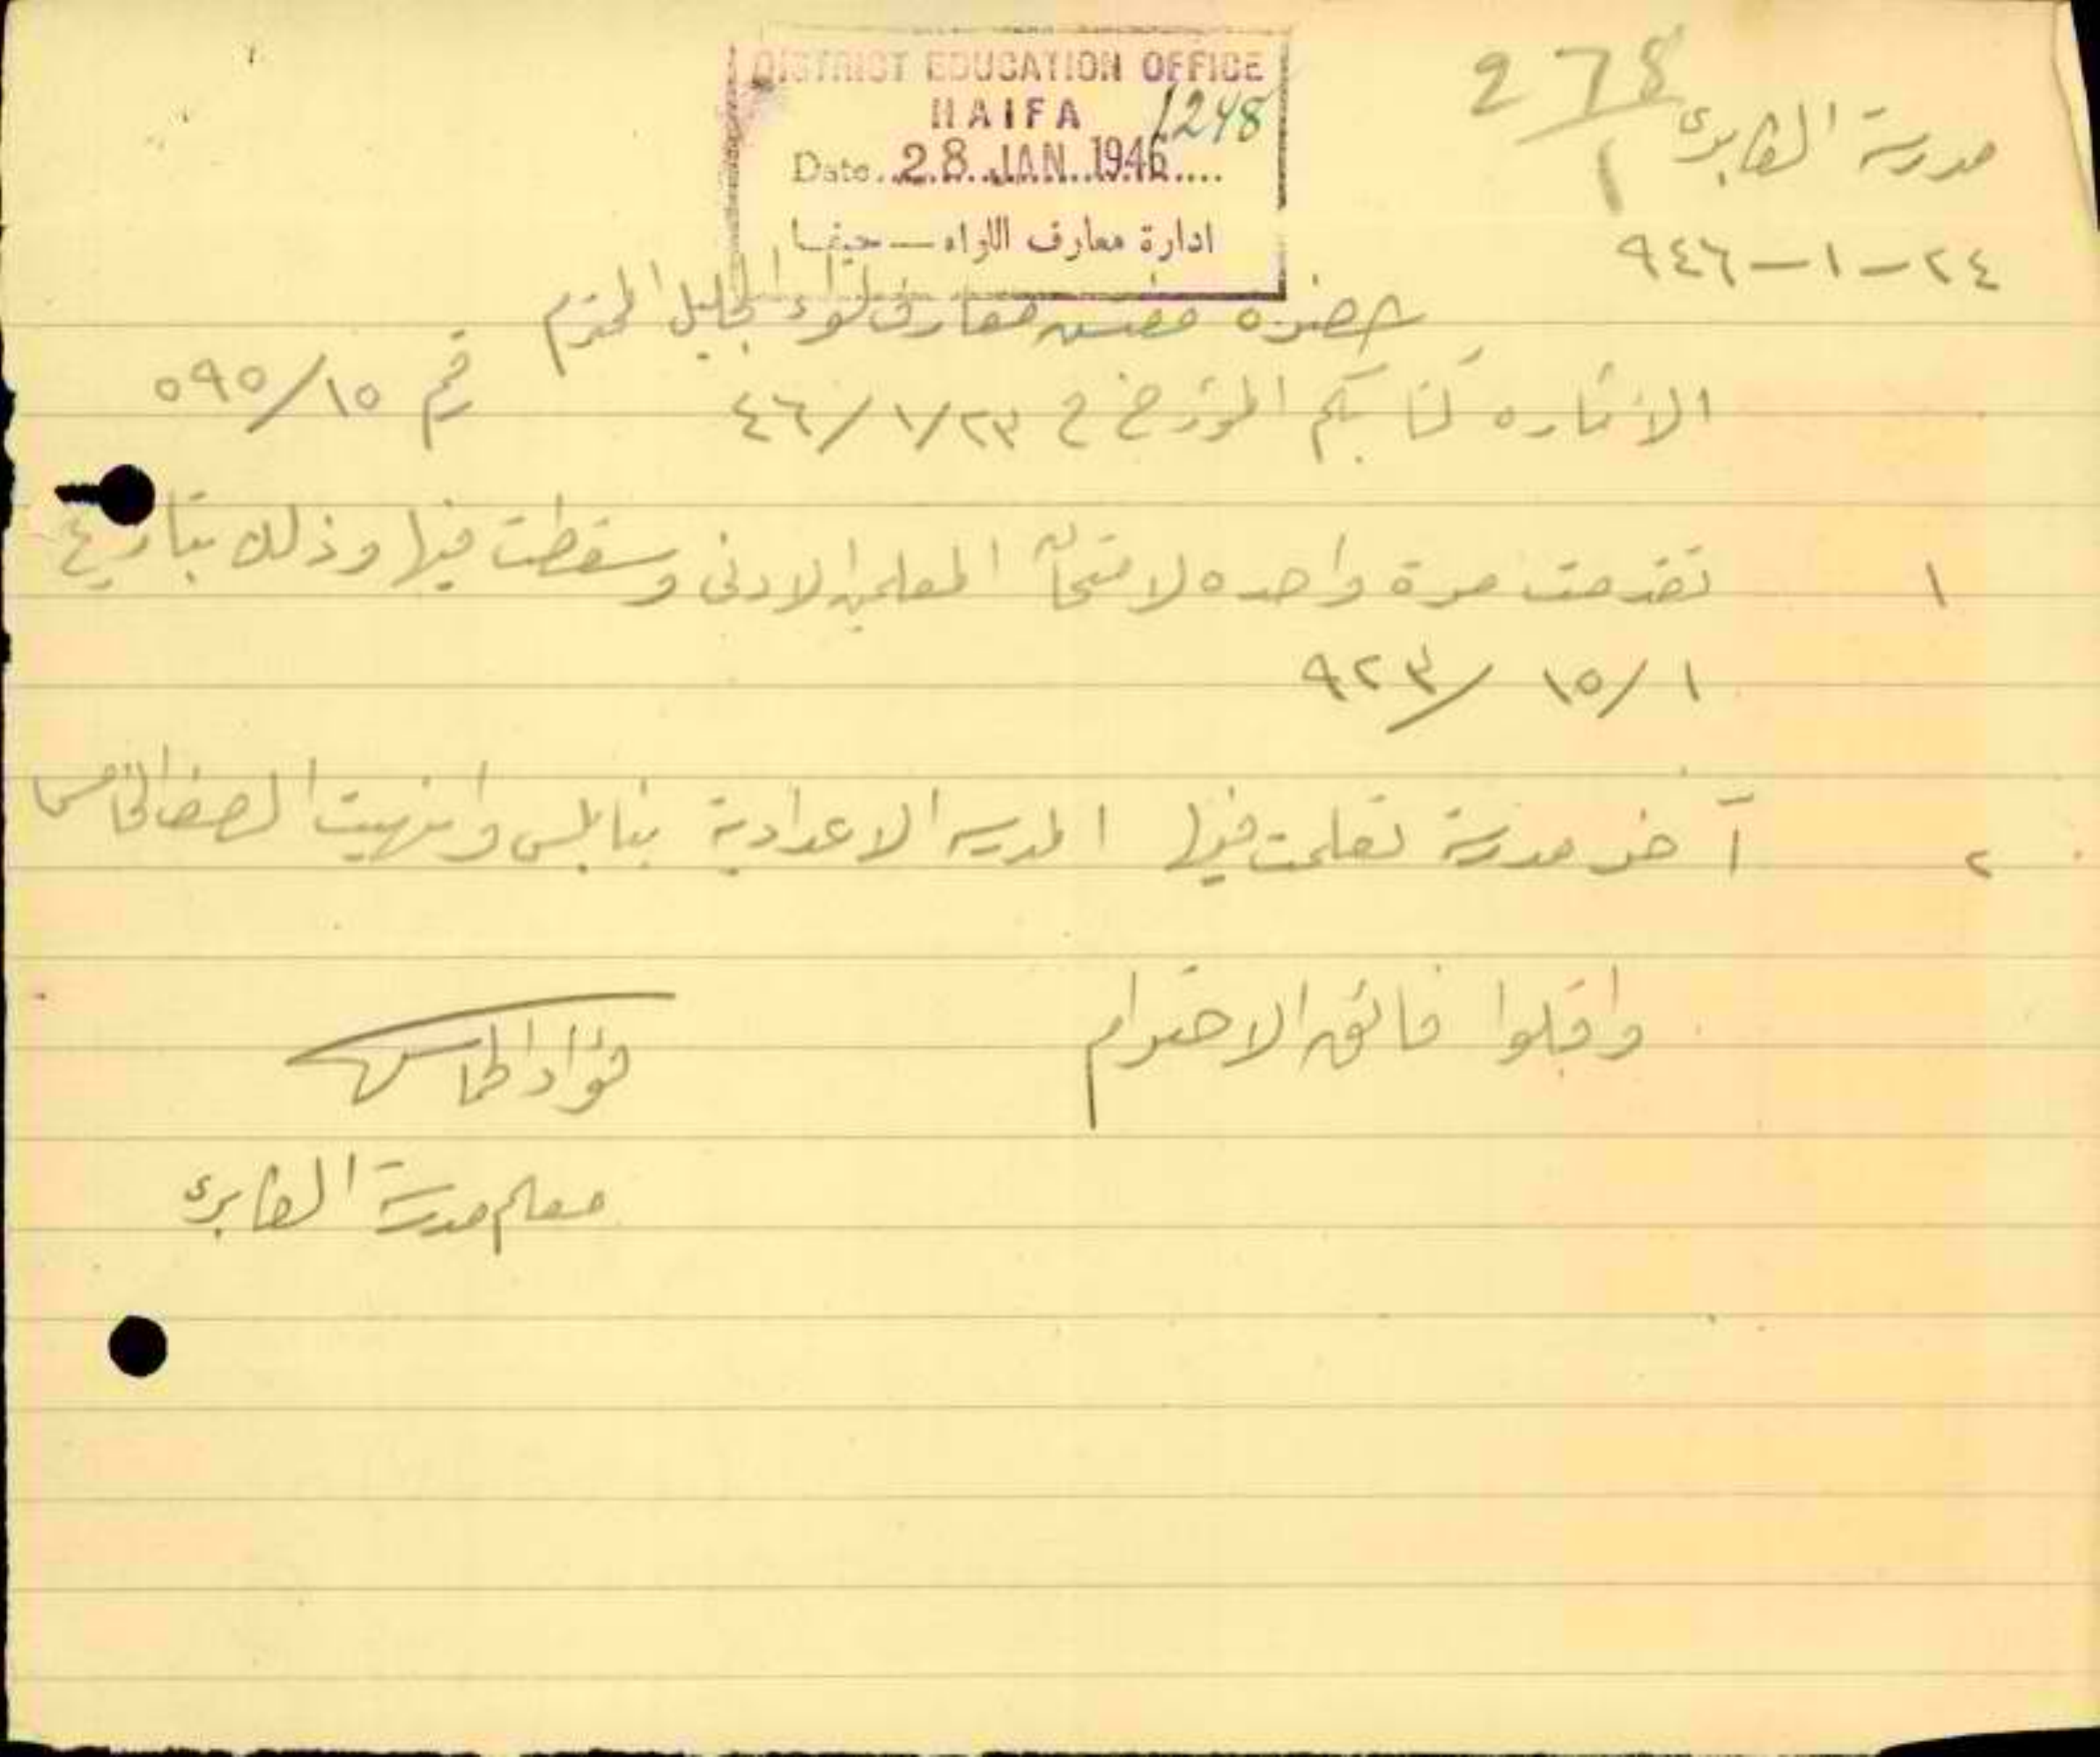 DISTRICT EDUCATION OFFICE
HAIFA 1248
Date. 28. JAN. 1946....
ادارة معارف اللواء — حيفا
278
1
مدرسة الصابرى
٢٤-١-٩٤٦
حضرة مفتش معارف لواء الجليل المحترم
الاشاره كتابكم المؤرخ في ٤٦/١/٢٣ رقم ٥٩٥/١٥
١ تقدمت مرة واحده لامتحان المعلمين الادنى وسقطت فيها وذلك بتاريخ
٩٢٣/١٥/١
٢ آخر مدرسة تعلمت فيها المدرسه الاعدادية بنابلس وانهيت الصف الخامس
واقبلوا فائق الاحترام
فؤاد
معلم مدرسة الصابرى